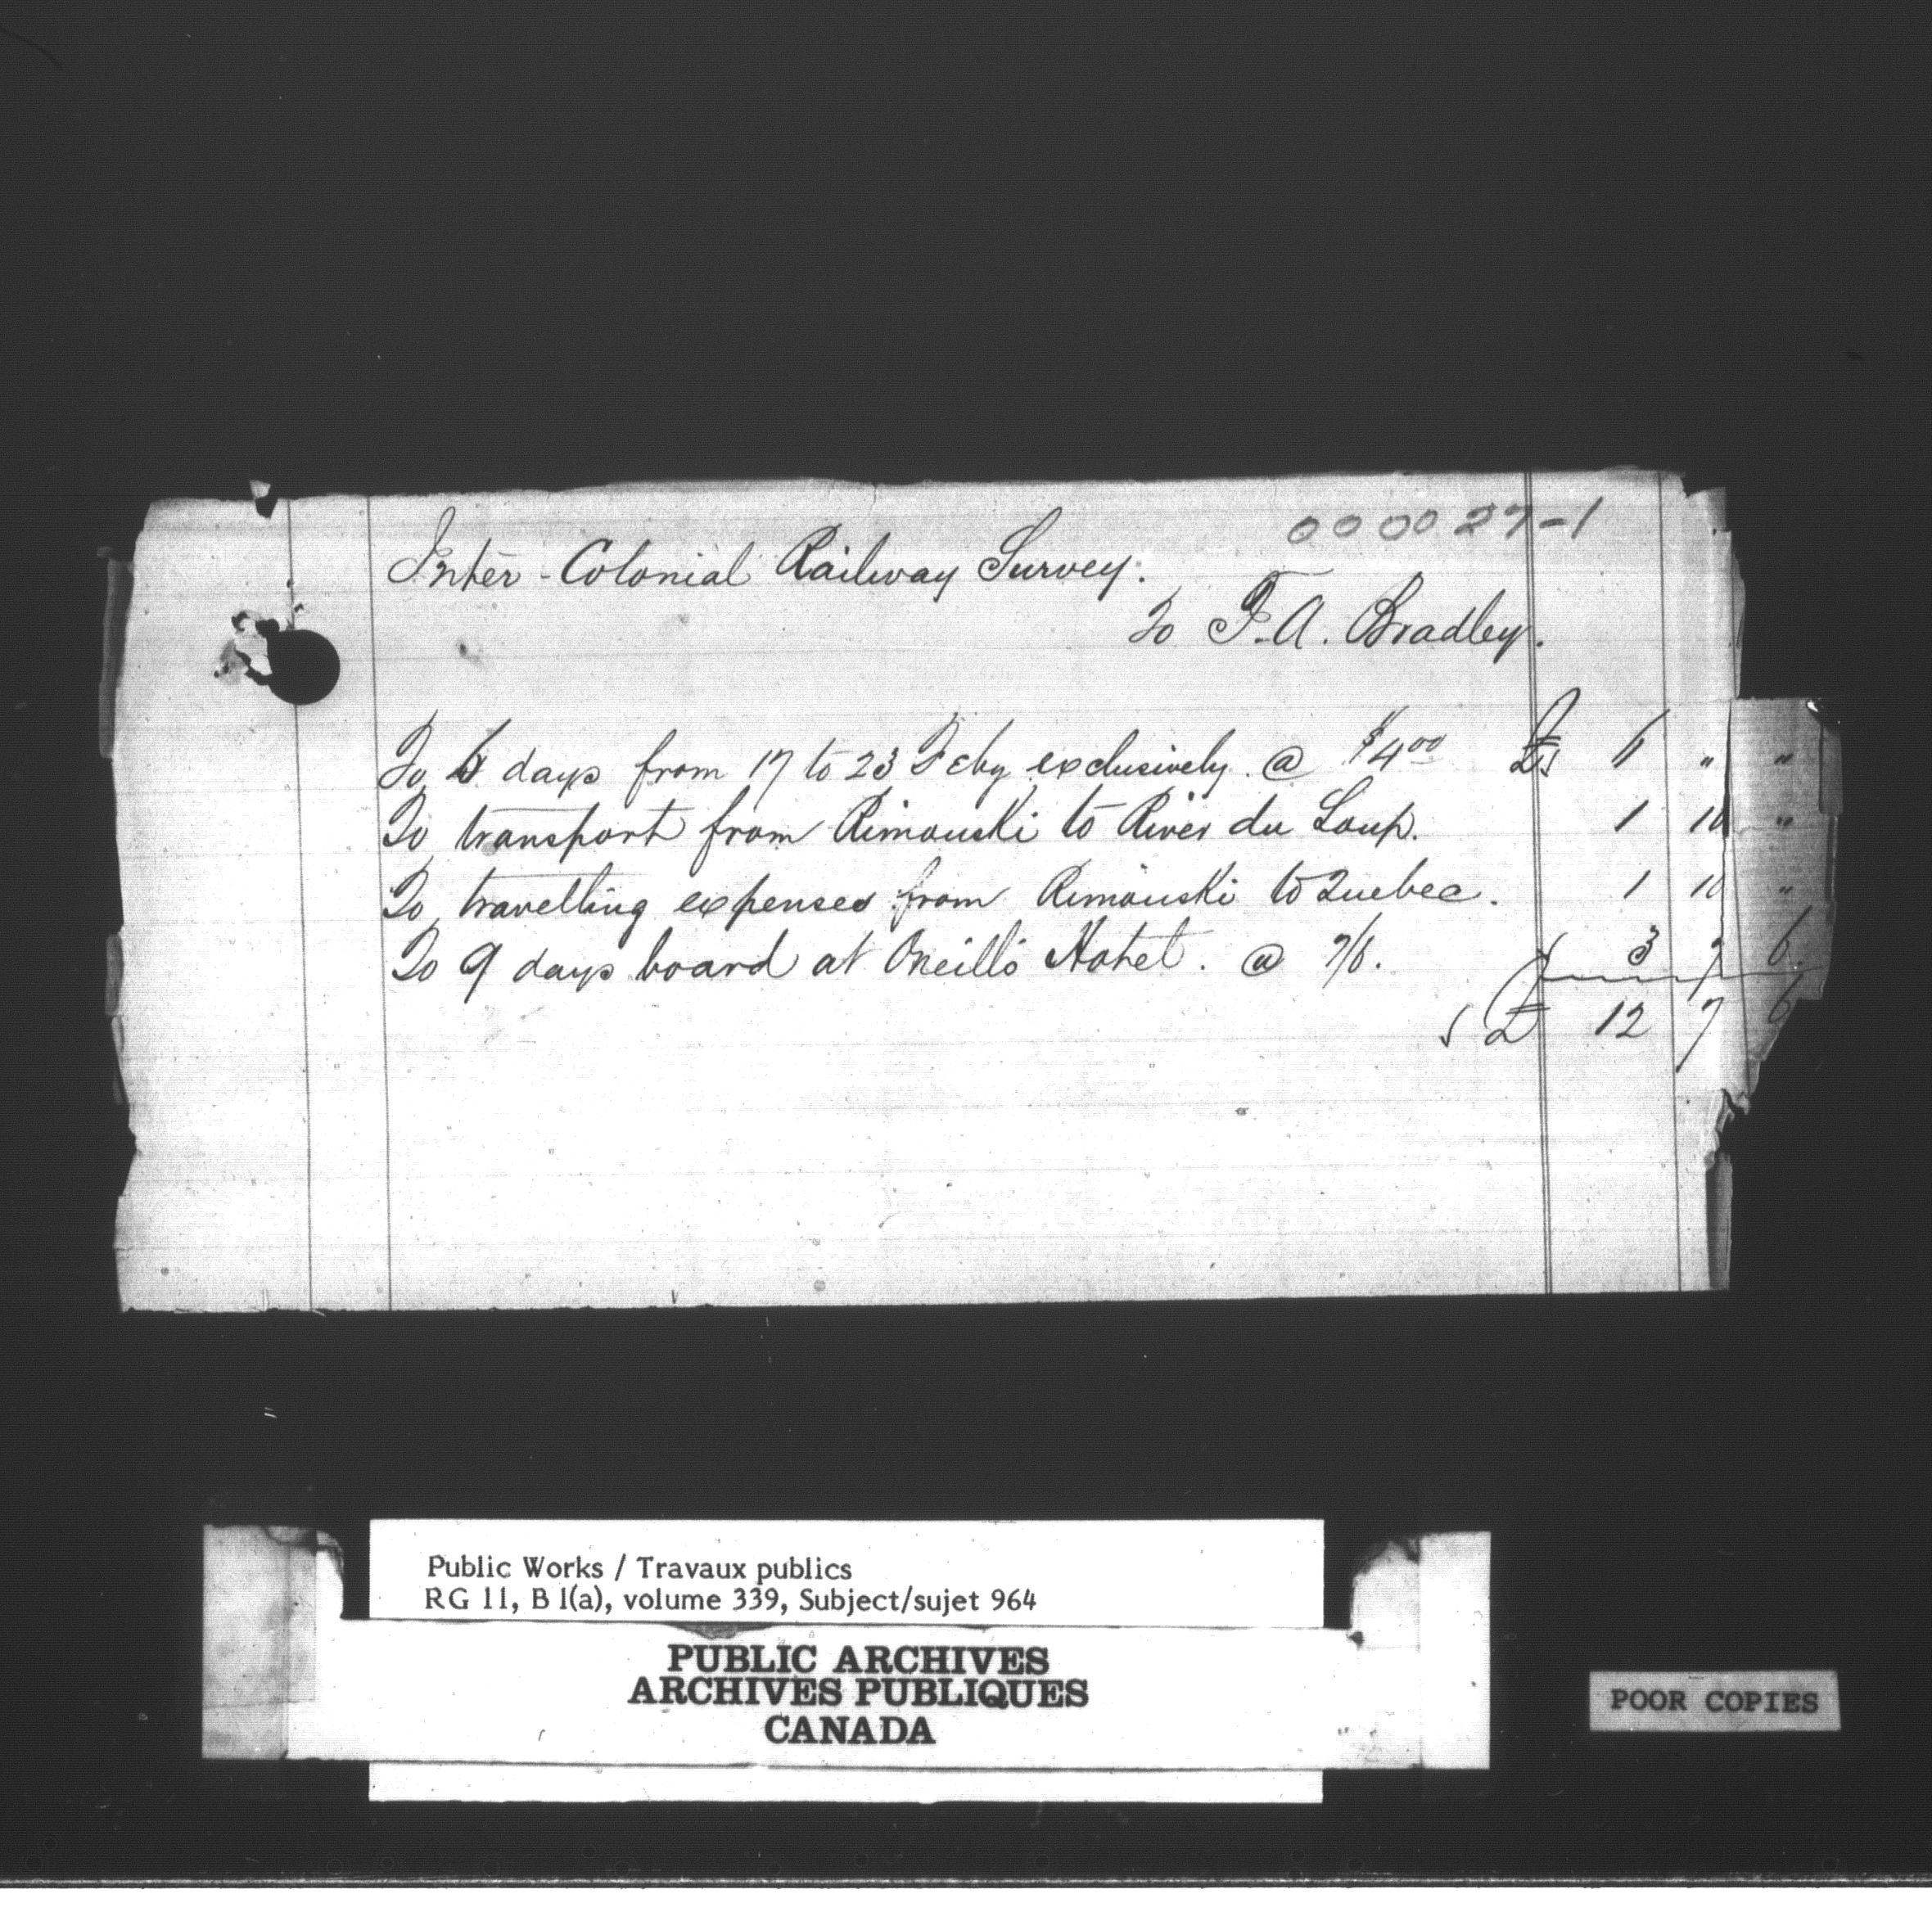 000027-1
Inter-Colonial Railway Survey.
To F. A. Bradley.
To 6 days from 17 to 23 Feby exclusively @ $4.00 £ 6 " "
To transport from Rimouski to River du Loup. 1 10 "
To travelling expenses from Rimouski to Quebec. 1 10 "
To 9 days board at Oneills Hotel. @ 7/6. 3 7 6.
£ 12 7 6
Public Works / Travaux publics
RG 11, B 1(a), volume 339, Subject/sujet 964
PUBLIC ARCHIVES
ARCHIVES PUBLIQUES
CANADA
POOR COPIES